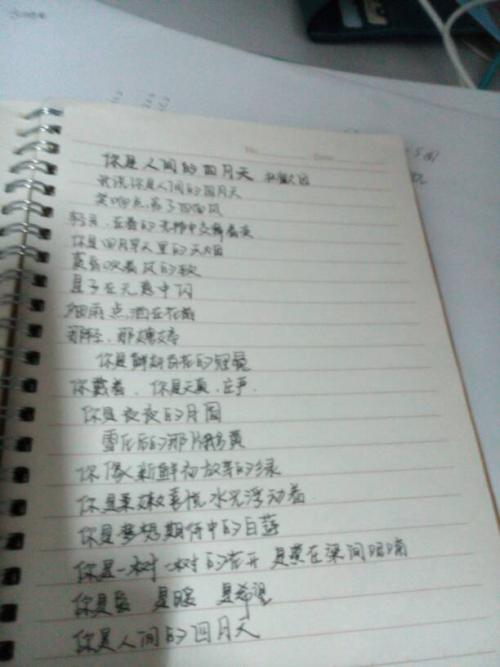 No. Date
你是人间的四月天 林徽因
我说你是人间的四月天
笑响点亮了四面风
轻灵,在春的光艳中交舞着变
你是四月早天里的云烟
黄昏吹着风的软
星子在无意中闪
细雨点洒在花前
那轻,那娉婷
你是鲜妍百花的冠冕
你戴着,你是天真,庄严,
你是夜夜的月圆
雪化后的那片鹅黄
你像 新鲜初放芽的绿
你是柔嫩喜悦 水光浮动着
你是梦想期待中的白莲
你是一树一树的花开 是燕在梁间呢喃
你是爱 是暖 是希望
你是人间的四月天